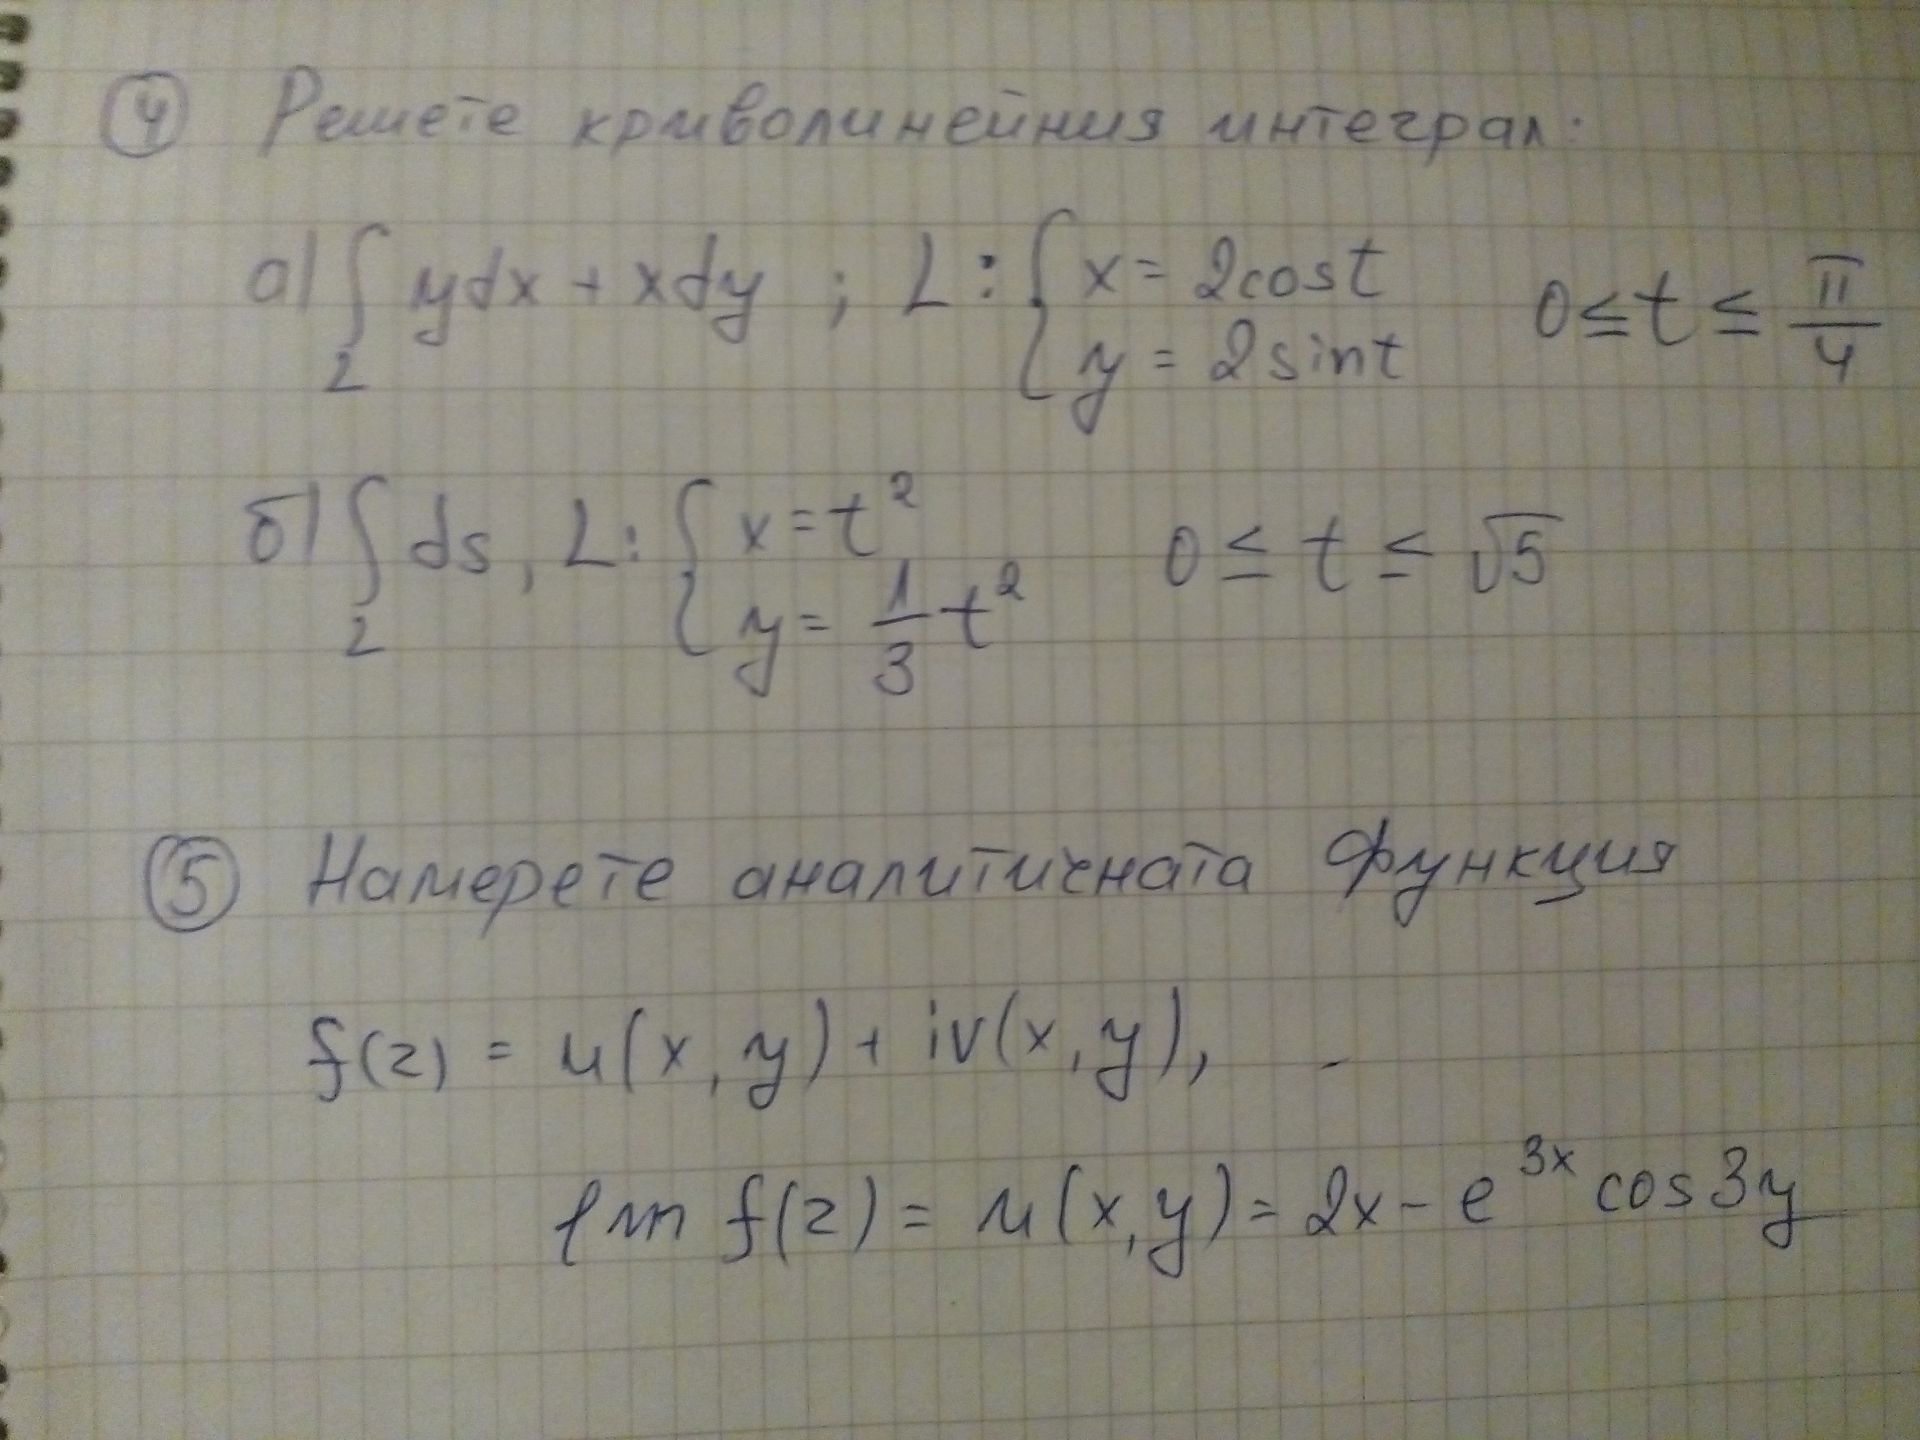 ④ Решете криволинейния интеграл:
а) ∫_L ydx + xdy ; L: { x = 2cost, y = 2sint   0 ≤ t ≤ π/4
б) ∫_L ds, L: { x = t², y = 1/3 t²   0 ≤ t ≤ √5
⑤ Намерете аналитичната функция
f(z) = u(x, y) + iv(x, y),
Im f(z) = u(x, y) = 2x - e^{3x} cos3y